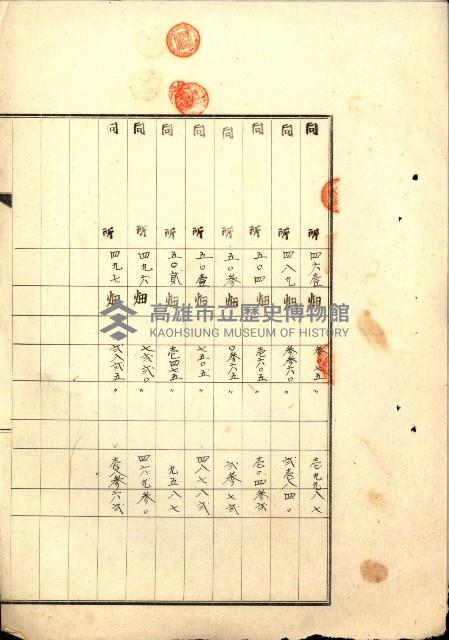 同所 四六壹 畑 參〃七五 壹九九八七
同所 四八九 畑 參參六〇 〃 貳壹八四〇
同所 五〇四 畑 壹六〇五 〃 壹〇四參貳
同所 五〇參 畑 〇參六五 〃 貳參七貳
同所 五〇壹 畑 七五〇五 〃 四八七八貳
同所 五〇貳 畑 壹四七五 〃 九五八七
同所 四九六 畑 七貳貳〇 〃 四六九參〇
同所 四九七 畑 貳八貳五 〃 壹八參六貳
高雄市立歷史博物館
KAOHSIUNG MUSEUM OF HISTORY